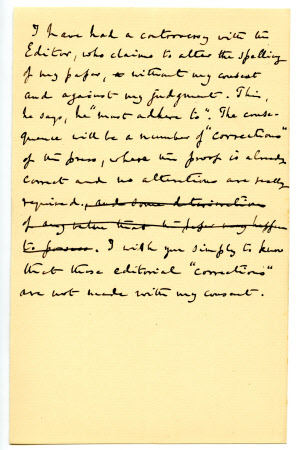 I have had a controversy with the
Editor, who claims to alter the spelling
of my paper, without my consent
and against my judgment. This,
he says, he "must adhere to". The conse-
quence will be a number of "corrections"
of the press, where the proof is already
correct and no alterations are really
required, and some deterioration
of any value that the paper may happen
to possess. I wish you simply to know
that those editorial "corrections"
are not made with my consent.